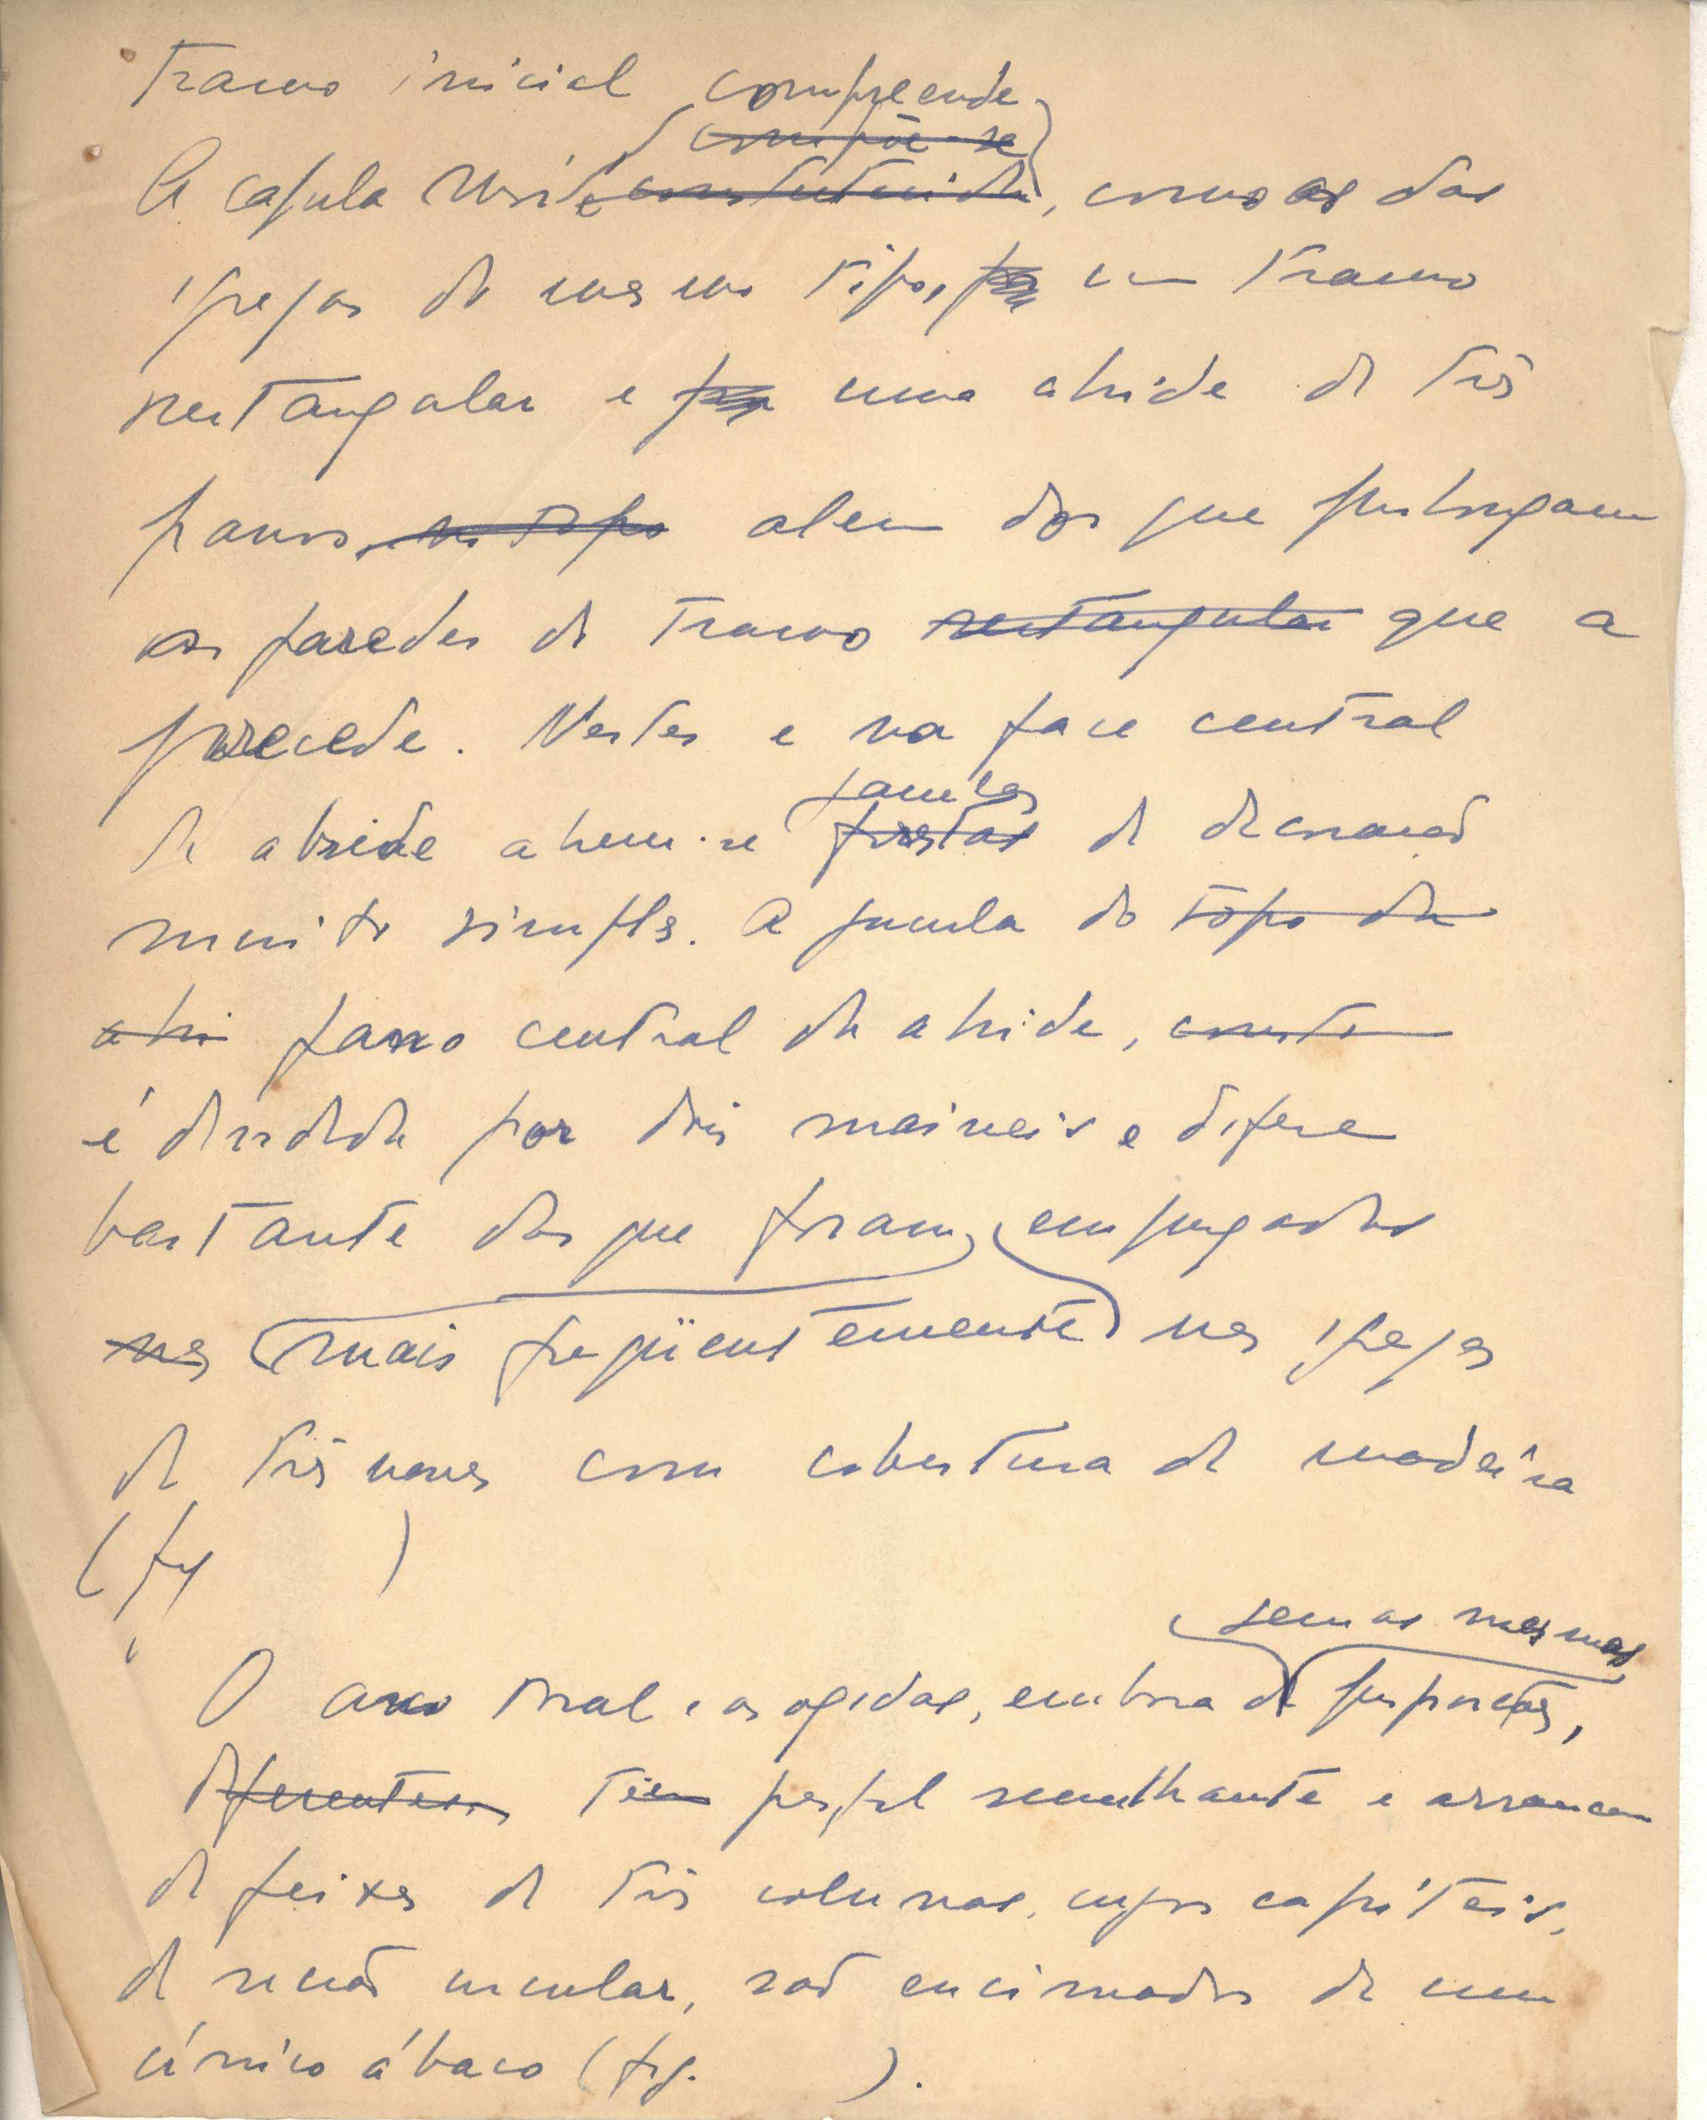 Tramo inicial compreende
compõe-se
A capela mór é constituida, como as das
igrejas do mesmo tipo, por um tramo
rectangular e por uma abside de três
panos, no topo alem dos que prolongam
as paredes do tramo rectangular que a
precede. Nestes e na face central
janelas
da abside abrem-se frestas de decoração
muito simples. A janela do topo da
absi pano central da abside, consta
é dividida por dois maineis e difere
bastante das que foram empregadas
nas mais freqüentemente nas igrejas
de três naves com cobertura de madeira
(fig )
sem as mesmas
O arco toral e as ogivas, embora de proporções,
diferentes, têem perfil semelhante e arrancam
de feixes de três colunas, cujos capiteis,
de secção circular, são encimados de um
único ábaco (fig. ).